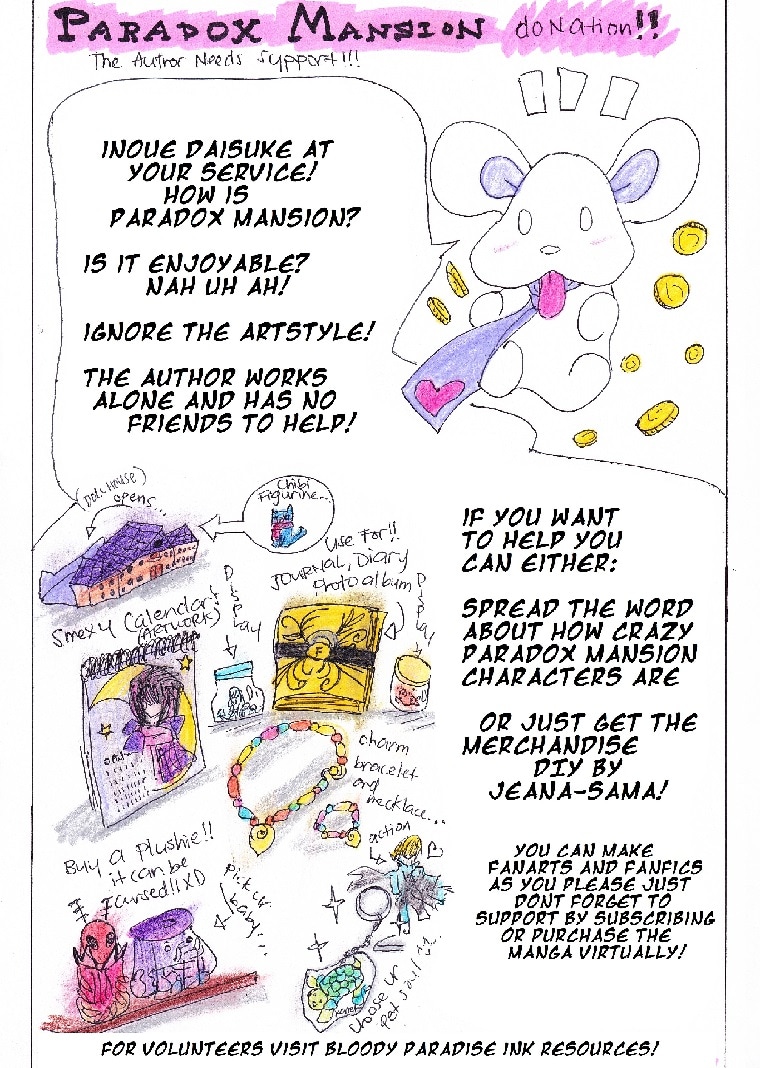 PARADOX MANSION donation!!
The Author Needs Support!!!
INOUE DAISUKE AT
YOUR SERVICE!
HOW IS
PARADOX MANSION?
IS IT ENJOYABLE?
NAH UH AH!
IGNORE THE ARTSTYLE!
THE AUTHOR WORKS
ALONE AND HAS NO
FRIENDS TO HELP!
(Doll House)
opens...
Chibi
Figurine...
Use For!!
JOURNAL, Diary
Photo album
Display
Display
Smexy Calendar!
(ARTWORKS)
F
charm
bracelet
and
necklace...
action
Buy a Plushie!!
it can be
cursed!! XD
Pick ur
baby...
Choose ur
pet soul!!
IF YOU WANT
TO HELP YOU
CAN EITHER:
SPREAD THE WORD
ABOUT HOW CRAZY
PARADOX MANSION
CHARACTERS ARE
OR JUST GET THE
MERCHANDISE
DIY BY
JEANA-SAMA!
YOU CAN MAKE
FANARTS AND FANFICS
AS YOU PLEASE JUST
DONT FORGET TO
SUPPORT BY SUBSCRIBING
OR PURCHASE THE
MANGA VIRTUALLY!
FOR VOLUNTEERS VISIT BLOODY PARADISE INK RESOURCES!